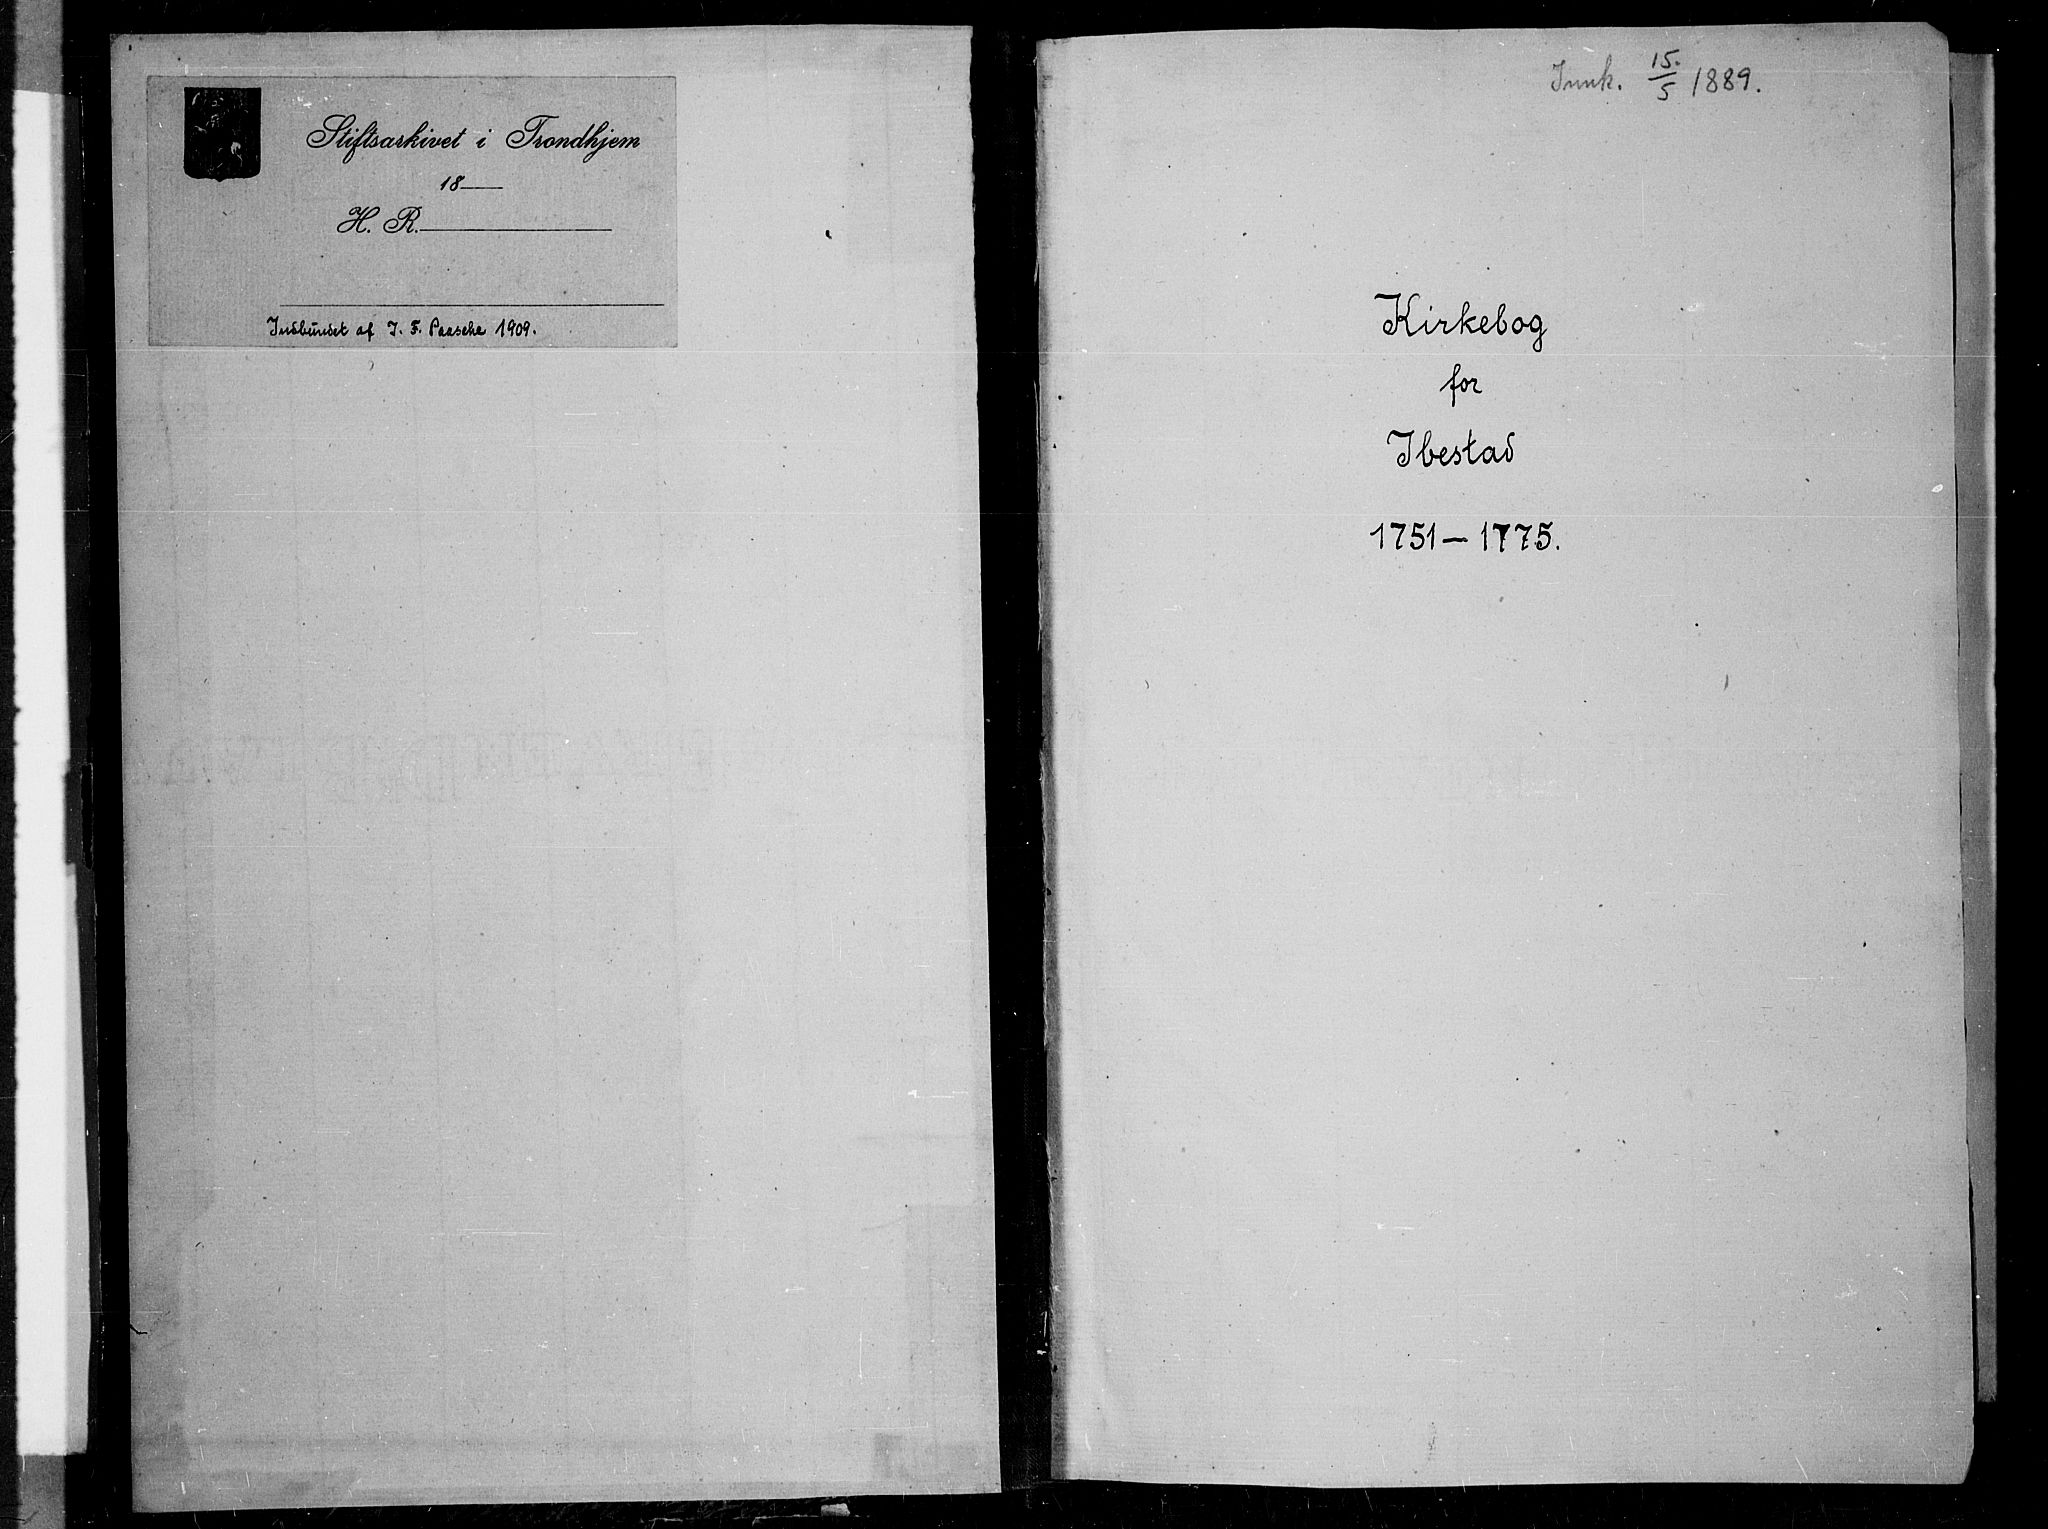 Stiftsarkivet i Trondhjem
18
H. R.
Indbundet af J. F. Paasche 1909.
Innk. 15./5 1889.
Kirkebog
for
Ibestad
1751-1775.